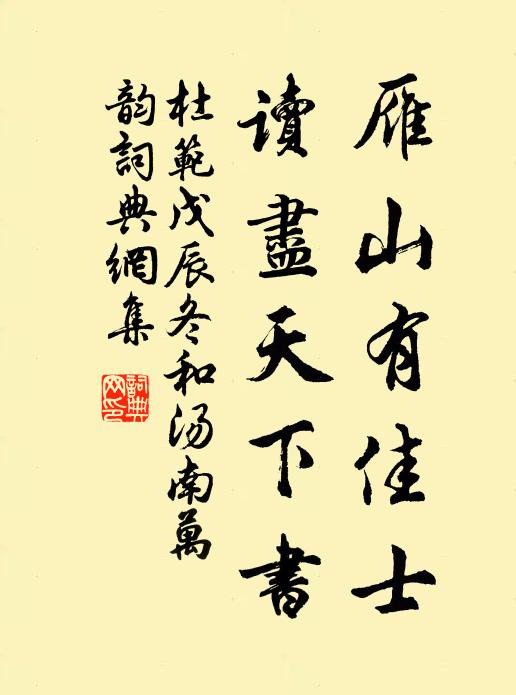 雁山有佳士
讀盡天下書
杜範戊辰冬和湯南萬
韵詞典網集
詞典
网印